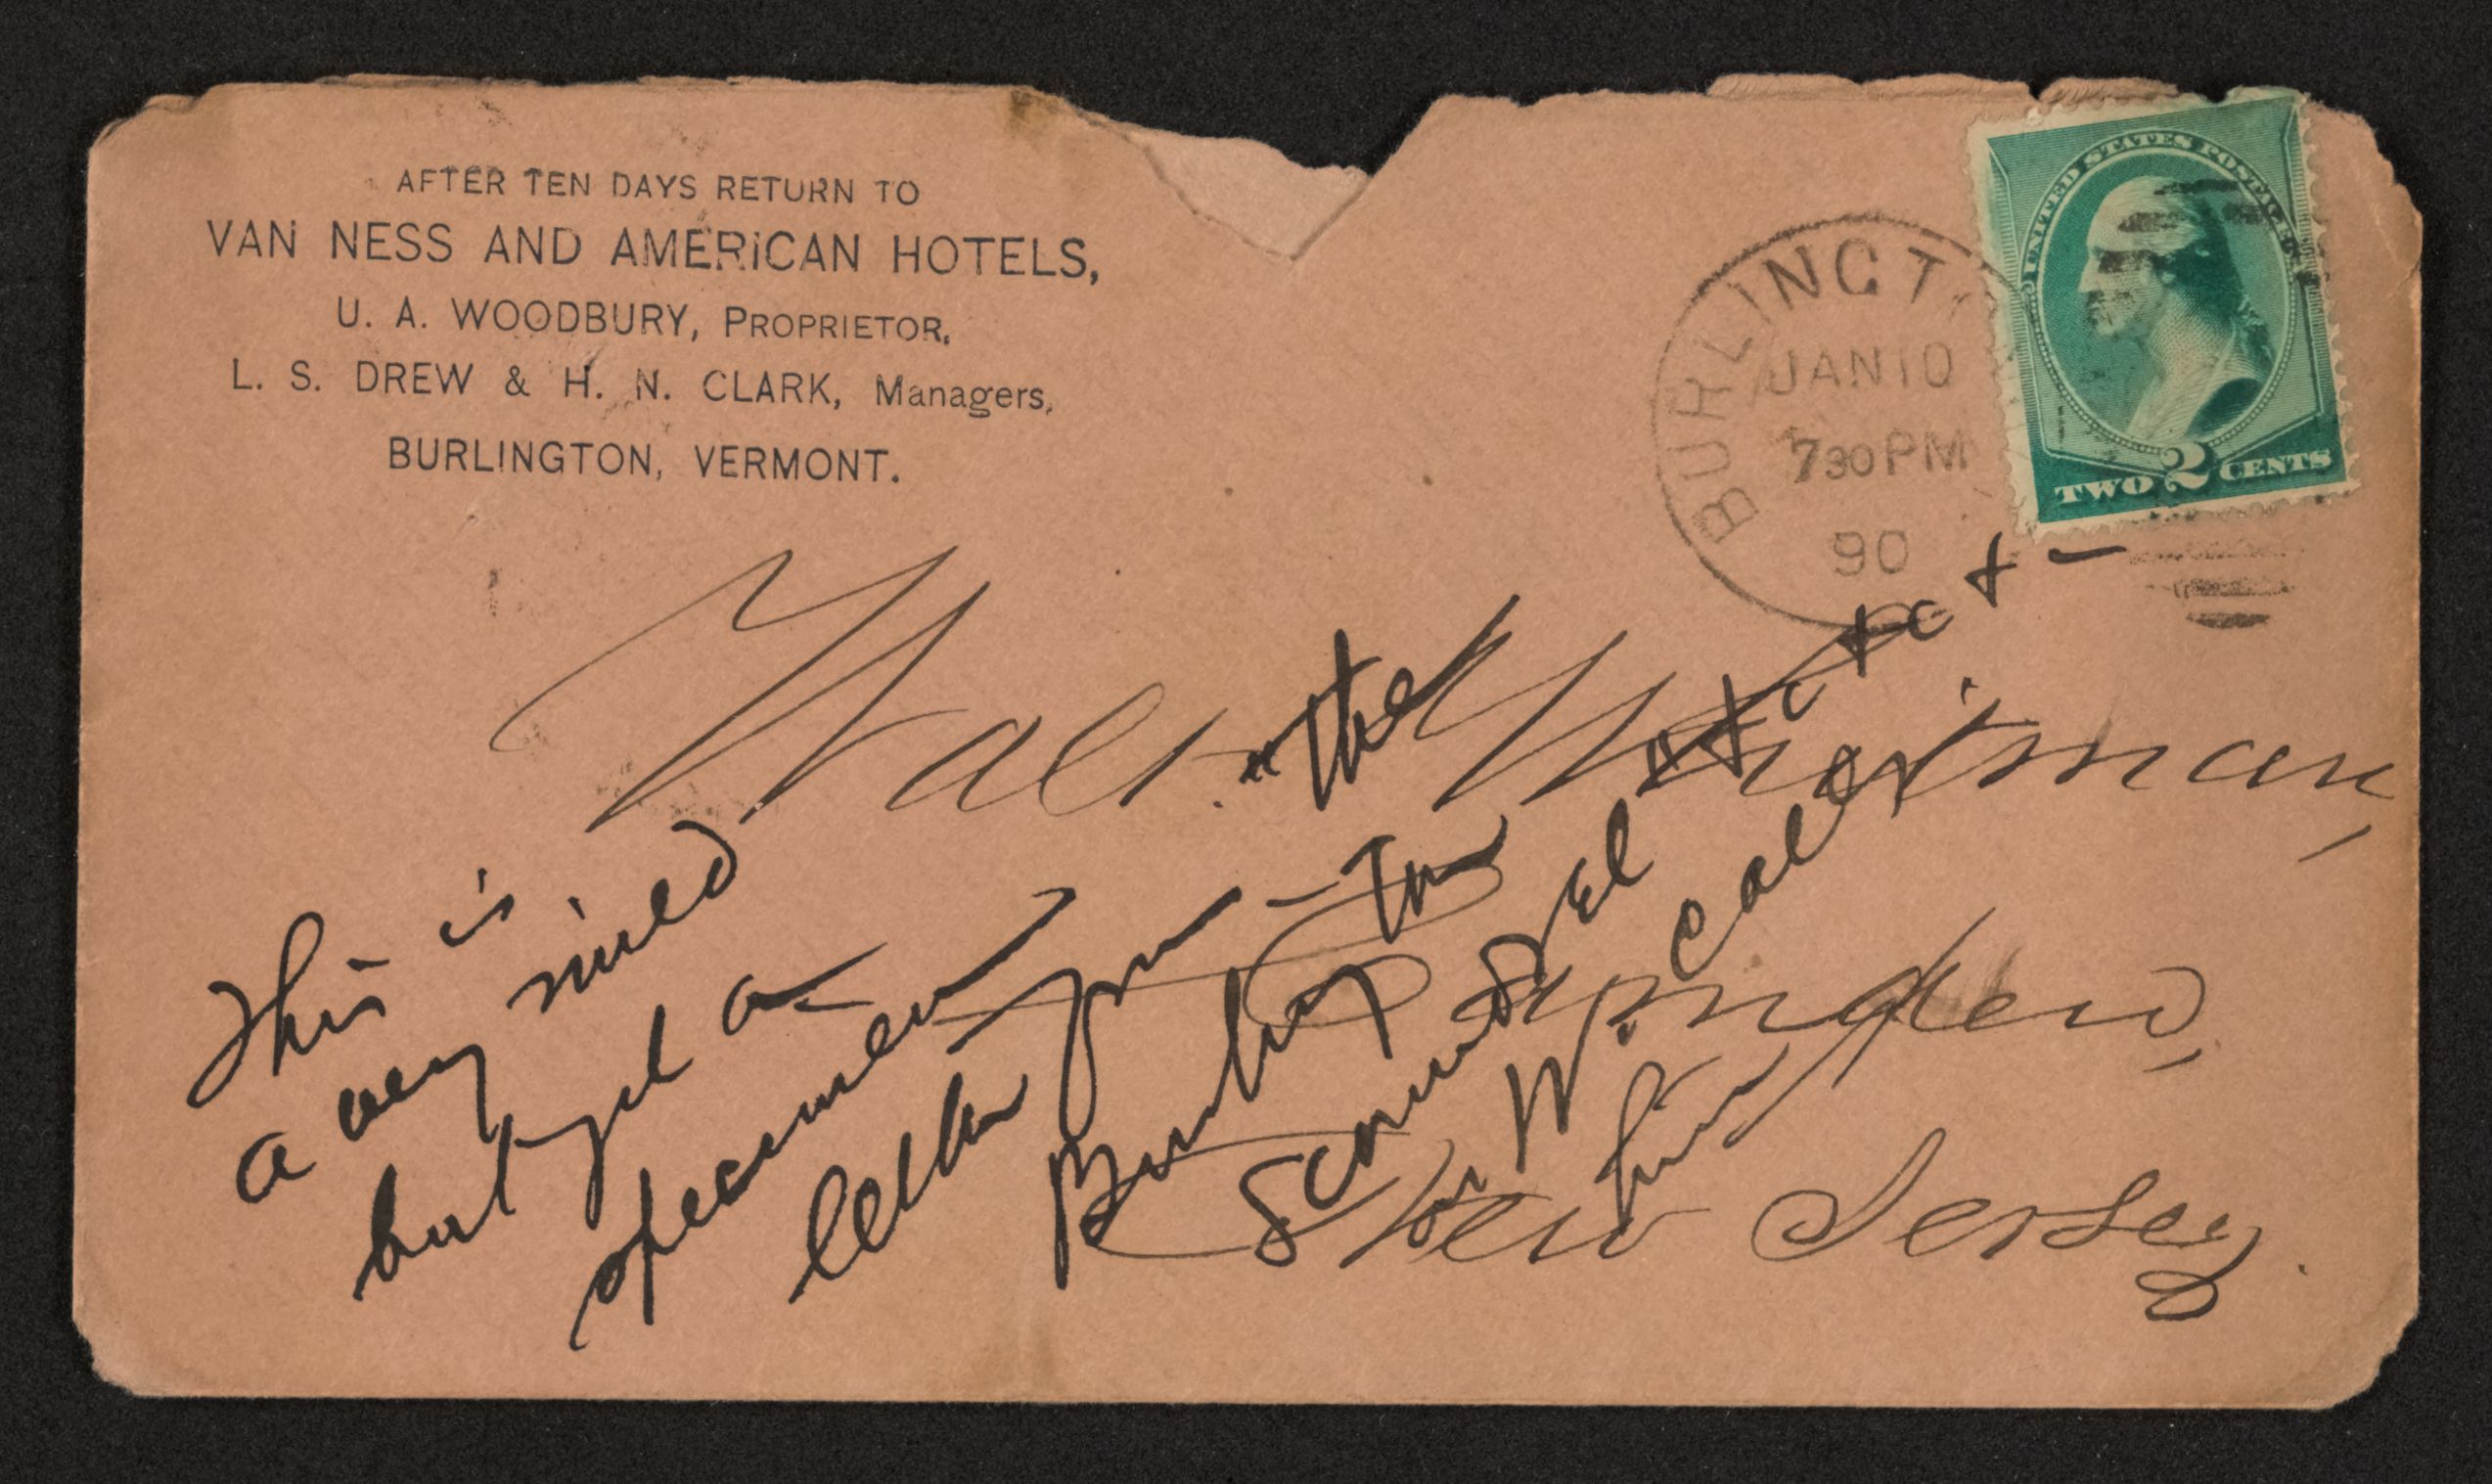 AFTER TEN DAYS RETURN TO
VAN NESS AND AMERICAN HOTELS,
U. A. WOODBURY, PROPRIETOR,
L. S. DREW & H. N. CLARK, Managers,
BURLINGTON, VERMONT.
BURLINGT
JAN 10
730 PM
90
UNITED STATES POSTAGE
TWO 2 CENTS
Walt Whitman,
Camden,
New Jersey.
This is
a very
but yet a
specimen
letter from
"the
scoundrel"
W. calls
him